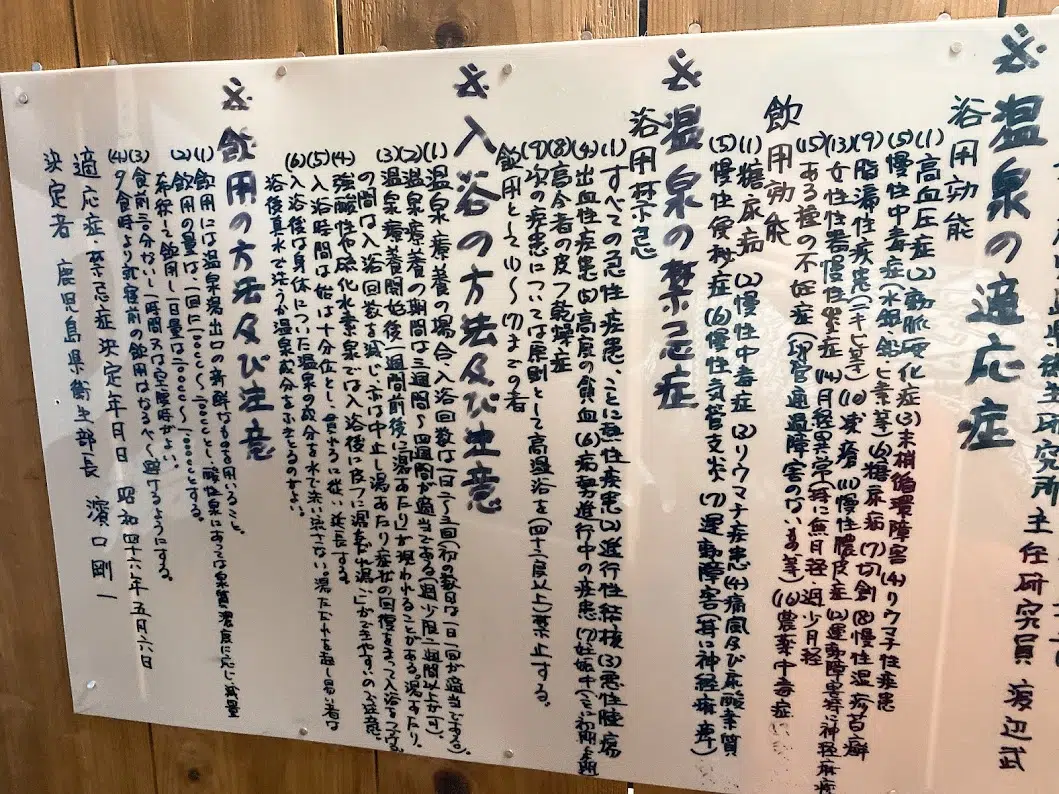 県衛生研究所主任研究員 渡辺武
※温泉の適応症
浴用効能
(1)高血圧症(2)動脈硬化症(3)末梢循環障害(4)リウマチ性疾患
(5)慢性中毒症(水銀鉛ヒ素等)(6)糖尿病(7)切創(8)慢性湿疹苔癬
(9)脂漏性疾患(ニキビ等)(10)凍瘡(11)慢性膿皮症(12)運動障害等に神経麻痺
(13)女性性器慢性炎症(14)月経異常(等に無月経・過少月経
(15)ある種の不妊症(卵管通過障害のないもの等)(16)農薬中毒症
飲用効能
(1)糖尿病(2)慢性中毒症(3)リウマチ疾患(4)痛風及び尿酸素質
(5)慢性便秘症(6)慢性気管支炎(7)運動障害(等に神経麻痺)
※温泉の禁忌症
浴用禁忌
(1)すべての急性疾患、ことに熱性疾患(2)進行性結核(3)悪性腫瘍
(4)出血性疾患(5)高度の貧血(6)病勢進行中の疾患(7)妊娠中(ことに初期と末期
(8)高令者の皮フ乾燥症
(9)次の疾患については原則として高温浴を(四十二度以上)禁止する。
飲用として(1)〜(7)までの者
※入浴の方法及び注意
(1)温泉療養の場合入浴回数は一日二〜三回(初の数日は一日一回が適当とする)
(2)温泉療養の期間は三週間〜四週間が適当である(過少限二週間以上が可)
(3)温泉療養開始後一週間前後に「湯あたり」が現われることがある。湯あたり
の間は入浴回数を減じ又は中止し湯あたり症状の回復をまって入浴をつづける
(4)強酸性や硫化水素泉では入浴後に皮フに湯ただれ湿しんができやすいので注意
(5)入浴時間は始は十分位とし貫れるに従い延長する
(6)入浴後は身体についた温泉の成分を水で洗い流さない。湯ただれを起し易い者は
浴後真水で洗うか温泉成分をふきとるのがよい。
※飲用の方法及び注意
(1)飲用には温泉湧出口の新鮮なものを用いること。
(2)飲用の量は、一回に一〇〇cc〜二〇〇ccとし、酸性泉にあっては泉質濃度に応じ減量
希釈して飲用し一日量は二〇〇cc〜一〇〇〇ccとする。
(3)食前三十分ないし一時間又は空腹時がよい。
(4)夕食時より就寝前の飲用はなるべく避けるようにする。
適応症・禁忌症決定年月日 昭和四十六年五月六日
決定者 鹿児島県衛生部長 濱口剛一